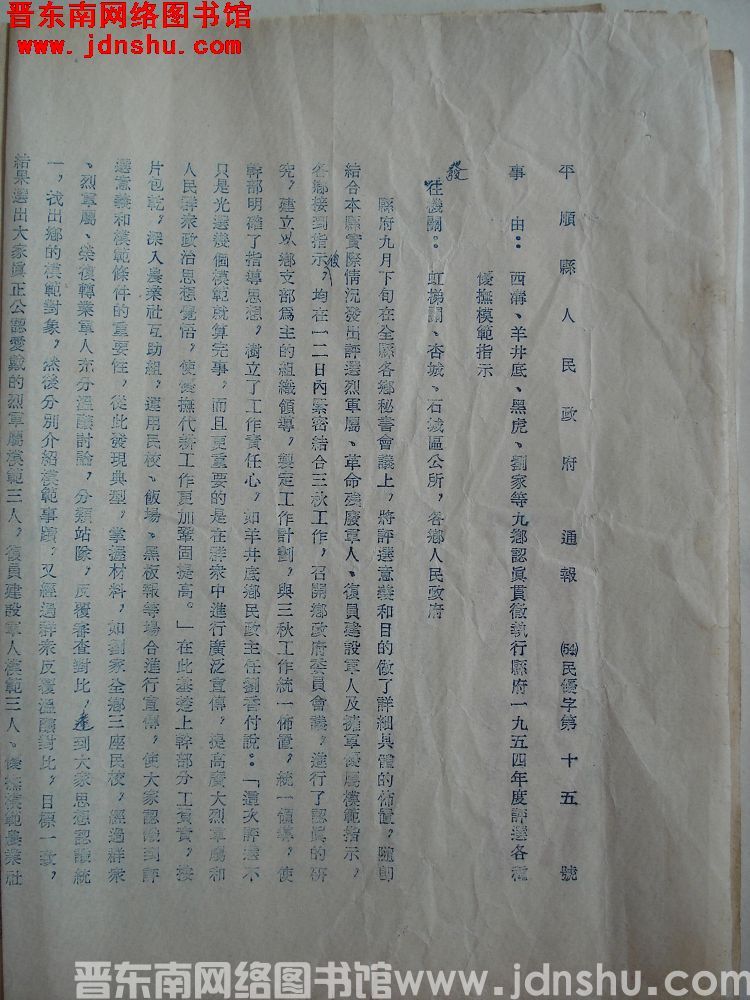 晋东南网络图书馆
www.jdnshu.com
平順縣人民政府通報 (54)民優字第十五號
事由：西溝、羊井底、黑虎、劉家等九鄉認眞貫徹執行縣府一九五四年度評選各種
優撫模範指示
發往機關：虹梯關、杏城、石城區公所，各鄉人民政府
縣府九月下旬在全縣各鄉秘書會議上，將評選意義和目的做了詳細具體的佈置，隨卽
結合本縣實際情況發出評選烈軍屬、革命殘廢軍人、復員建設軍人及擁軍優屬模範指示，
各鄉接到指示後，均在一二日內緊密結合三秋工作，召開鄉政府委員會議，進行了認眞的研
究，建立以鄉支部爲主的組織領導，製定工作計劃，與三秋工作統一佈置，統一領導，使
幹部明確了指導思想，樹立了工作責任心，如羊井底鄉民政主任劉香付說：「這次評選不
只是光選幾個模範就算完事，而且更重要的是在群衆中進行廣泛宣傳，提高廣大烈軍屬和
人民群衆政治思想覺悟，使優撫代耕工作更加鞏固提高。」在此基楚上幹部分工負責，按
片包乾，深入農業社互助組，運用民校、飯場、黑板報等場合進行宣傳，使大家認識到評
選意義和模範條件的重要性，從此發現典型，掌握材料，如劉家全鄉三座民校，經過群衆
、烈軍屬、榮復轉業軍人充分溫釀討論，分類站隊，反覆審查對比，達到大家思想認識統
一，找出鄉的模範對象，然後分別介紹模範事蹟，又經過群衆反覆溫釀對比，目標一致，
結果選出大家眞正公認愛戴的烈軍屬模範三人，復員建設軍人模範三人、優撫模範農業社
晋东南网络图书馆www.jdnshu.com